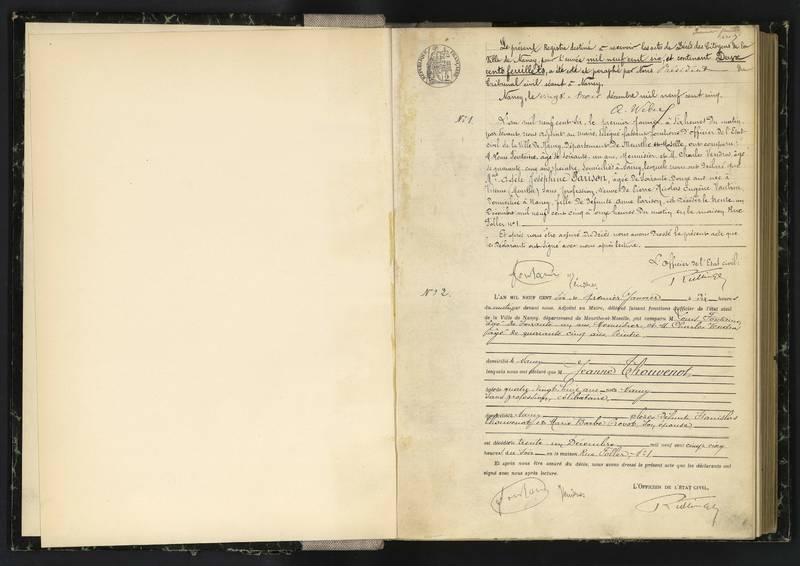 RÉPUBLIQUE FRANÇAISE
Le présent Registre destiné à recevoir les actes de Décès des Citoyens de la
Ville de Nancy, pour l'année mil neuf cent six, et contenant Deux
cents feuillets, a été coté et paraphé par Nous Président du
Tribunal civil séant à Nancy.
Nancy, le vingt trois décembre mil neuf cent cinq.
A. Weber
No 1.
L'an mil neuf cent six, le premier Janvier à dix heures du matin,
par devant nous adjoint au maire, délégué faisant fonctions d'officier de l'État-
civil de la Ville de Nancy, Département de Meurthe et Moselle, ont comparu:
M. Louis Fontaine, âgé de soixante un ans, Menuisier, et M. Charles Vendres, âgé
de quarante cinq ans, peintre, domiciliés à Nancy, lesquels nous ont déclaré que
Mme Adèle Joséphine Parison, âgée de soixante douze ans née à
(Meurthe), sans profession, veuve de Pierre Nicolas Eugène
Domiciliée à Nancy, fille de défunte Anne Parison, est décédée le trente un
Décembre mil neuf cent cinq à onze heures du matin, en la maison Rue
Toller no 1
Et après nous être assuré du décès nous avons dressé le présent acte que
les déclarants ont signé avec nous après lecture.
L'officier de l'État civil.
Fontaine
Vendres
No 2.
L'AN MIL NEUF CENT six le premier Janvier à dix heures
du matin par devant nous, Adjoint au Maire, délégué faisant fonctions d'officier de l'état civil
de la Ville de Nancy, département de Meurthe-et-Moselle, ont comparu M. Louis Fontaine,
âgé de soixante un ans, Menuisier et M. Charles Vendres
âgé de quarante cinq ans, Peintre
domiciliés à Nancy
lesquels nous ont déclaré que M. Jeanne Chouvenot,
âgée de quatre vingt huit ans née à Nancy
sans profession, célibataire,
Nancy fille des défunts Stanislas
Chouvenot et Marie Barbe Prevot, son épouse
est décédée le trente un Décembre mil neuf cent cinq cinq
heures du soir en la maison Rue Toller No 1
Et après nous être assuré du décès, nous avons dressé le présent acte que les déclarants ont
signé avec nous après lecture.
L'OFFICIER DE L'ÉTAT CIVIL,
Fontaine
Vendres